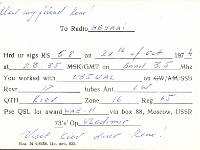 my friend Rene!
To Radio HB9AAI
Hrd ur sigs RS 58 on 20th of Oct 1974
at 2835 MSK/GMT on band 3,5 Mhz
You worked with UB5UAL on CW/AM/SSB
Rcvr 17 tubes Ant LW
QTH Kiev Zone 16 Reg 65
Pse QSL for award via box 88, Moscow, USSR
73's! Op Vladimir
Visit Kiev dear Rene!